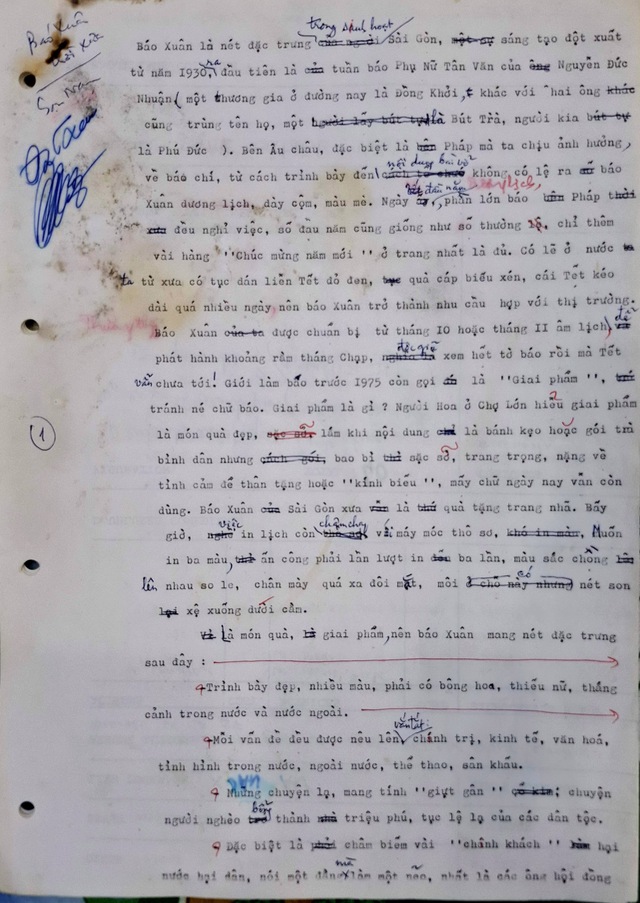 Báo Xuân
thời xưa
Sơn Nam
trong sinh hoạt
Báo Xuân là nét đặc trưng Sài Gòn, sáng tạo đột xuất
từ năm I930, ra đầu tiên là tuần báo Phụ Nữ Tân Văn của ông Nguyễn Đức
Nhuận ( một thương gia ở đường nay là Đồng Khởi, khác với hai ông khác
cũng trùng tên họ, một là Bút Trà, người kia
là Phú Đức ). Bên Âu châu, đặc biệt là Pháp mà ta chịu ảnh hưởng,
nội dung bài vở
về báo chí, từ cách trình bày đến không có lệ ra báo
đầu năm dương lịch,
Xuân dương lịch, dày cộm, màu mè. Ngày phần lớn báo Pháp
đều nghỉ việc, số đầu năm cũng giống như số thường lệ, chỉ thêm
vài hàng "Chúc mừng năm mới " ở trang nhất là đủ. Có lẽ ở nước
ta từ xưa có tục dán liễn Tết đỏ đen, quà cáp biếu xén, cái Tết kéo
dài quá nhiều ngày, nên báo Xuân trở thành nhu cầu hợp với thị trường.
Báo Xuân được chuẩn bị từ tháng IO hoặc tháng II âm lịch, để
độc giả
phát hành khoảng rằm tháng Chạp, xem hết tờ báo rồi mà Tết
vẫn chưa tới! Giới làm báo trước I975 còn gọi là "Giai phẩm ",
tránh né chữ báo. Giai phẩm là gì ? Người Hoa ở Chợ Lớn hiểu giai phẩm
là món quà đẹp, lắm khi nội dung là bánh kẹo hoặc gói trà
bình dân nhưng bao bì sặc sỡ, trang trọng, nặng về
tình cảm để thân tặng hoặc "kính biếu ", mấy chữ ngày nay vẫn còn
dùng. Báo Xuân Sài Gòn xưa là quà tặng trang nhã. Bấy
việc chậm chạp
giờ, in lịch còn với máy móc thô sơ, Muốn
in ba màu, ấn công phải lần lượt in ba lần, màu sắc chồng
lên nhau so le, chân mày quá xa đôi mắt, môi có nét son
xệ xuống dưới cằm.
Là món quà, giai phẩm, nên báo Xuân mang nét đặc trưng
sau đây :
Trình bày đẹp, nhiều màu, phải có bông hoa, thiếu nữ, thắng
cảnh trong nước và nước ngoài.
vắn tắt:
Mỗi vấn đề đều được nêu lên chánh trị, kinh tế, văn hoá,
tình hình trong nước, ngoài nước, thể thao, sân khấu.
Những chuyện lạ, mang tính "giựt gân " ; chuyện
bỗng
người nghèo thành triệu phú, tục lệ lạ của các dân tộc.
Đặc biệt là châm biếm vài "chánh khách " hại
mà
nước hại dân, nói một đàng làm một nẻo, nhất là các ông hội đồng
1